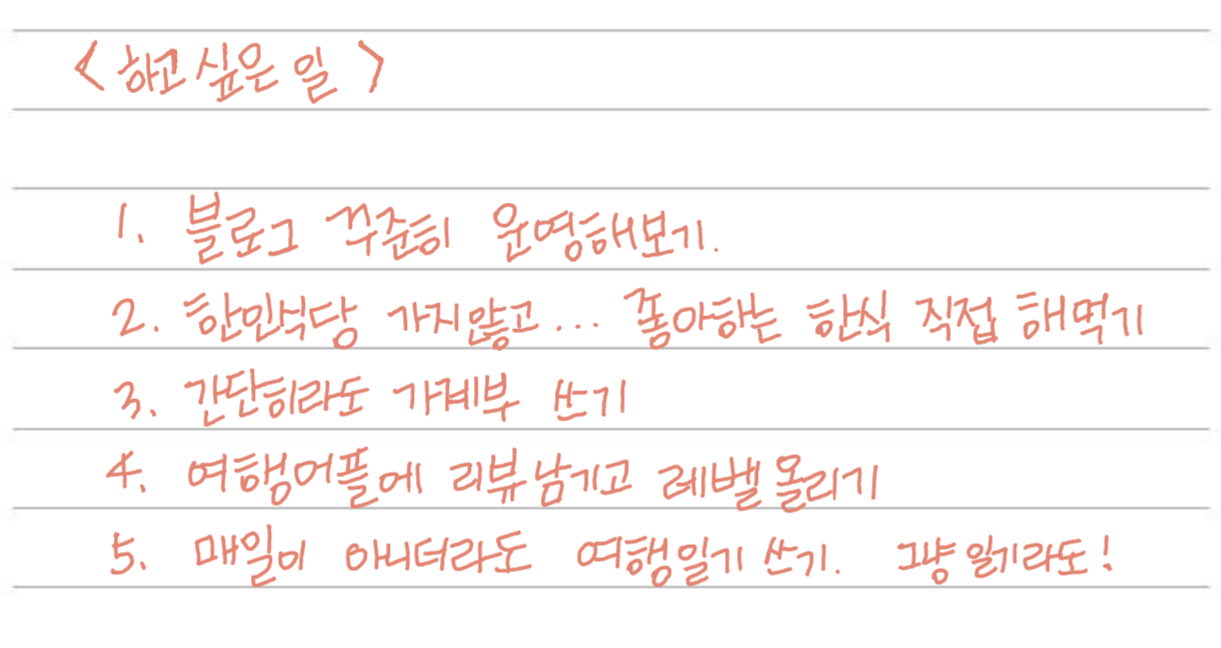 <하고 싶은 일>
1. 블로그 꾸준히 운영해보기.
2. 한인식당 가지않고... 좋아하는 한식 직접 해먹기
3. 간단히라도 가계부 쓰기
4. 여행어플에 리뷰남기고 레벨 올리기
5. 매일이 아니더라도 여행일기 쓰기. 그냥 일기라도!